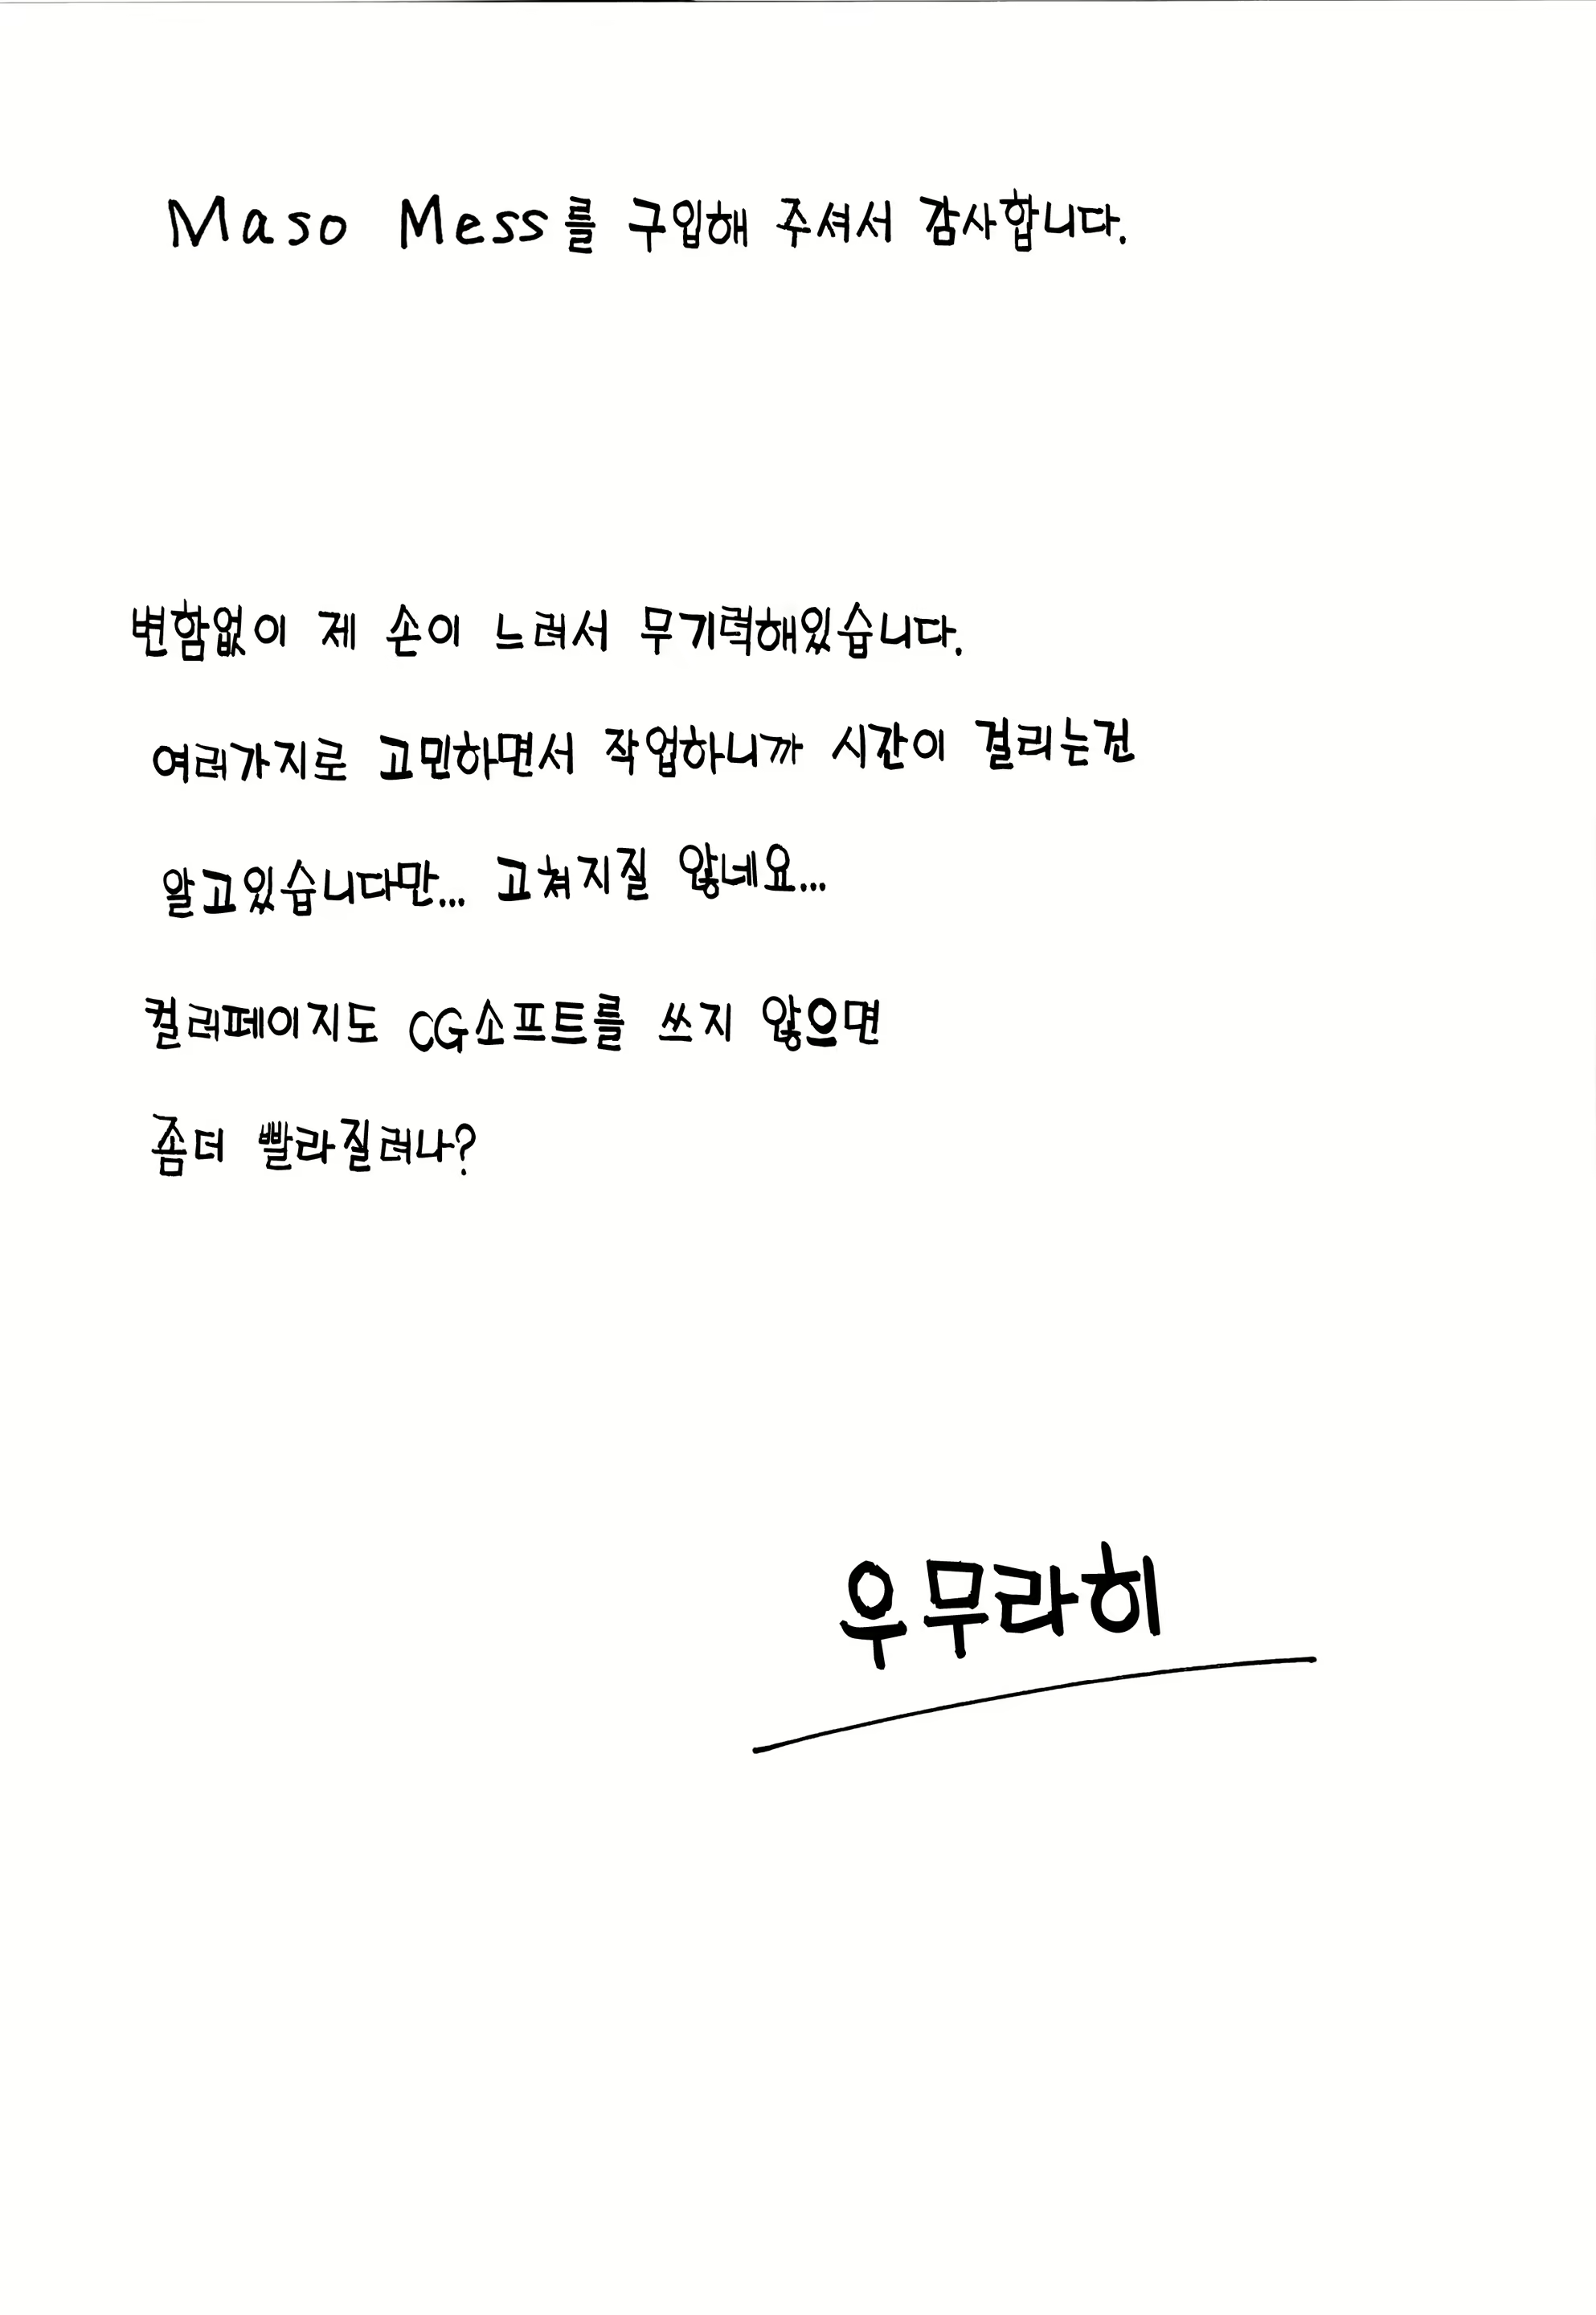 Maso Mess를 구입해 주셔서 감사합니다.
변함없이 제 손이 느려서 무기력해있습니다.
여러가지로 고민하면서 작업하니까 시간이 걸리는건
알고있습니다만... 고쳐지질 않네요...
컬러페이지도 CG소프트를 쓰지 않으면
좀더 빨라질려나?
우무라히